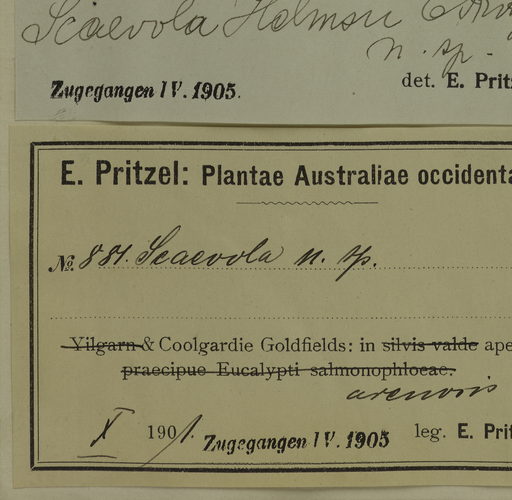 Scaevola Helmsii
n. sp.
Zugegangen IV. 1905. det. E. Pritz
E. Pritzel: Plantae Australiae occidenta
№ 881. Scaevola n. sp.
Yilgarn & Coolgardie Goldfields: in silvis valde ape
praecipue Eucalypti salmonophloeae.
arenosis
X 1901. Zugegangen IV. 1905 leg. E. Prit